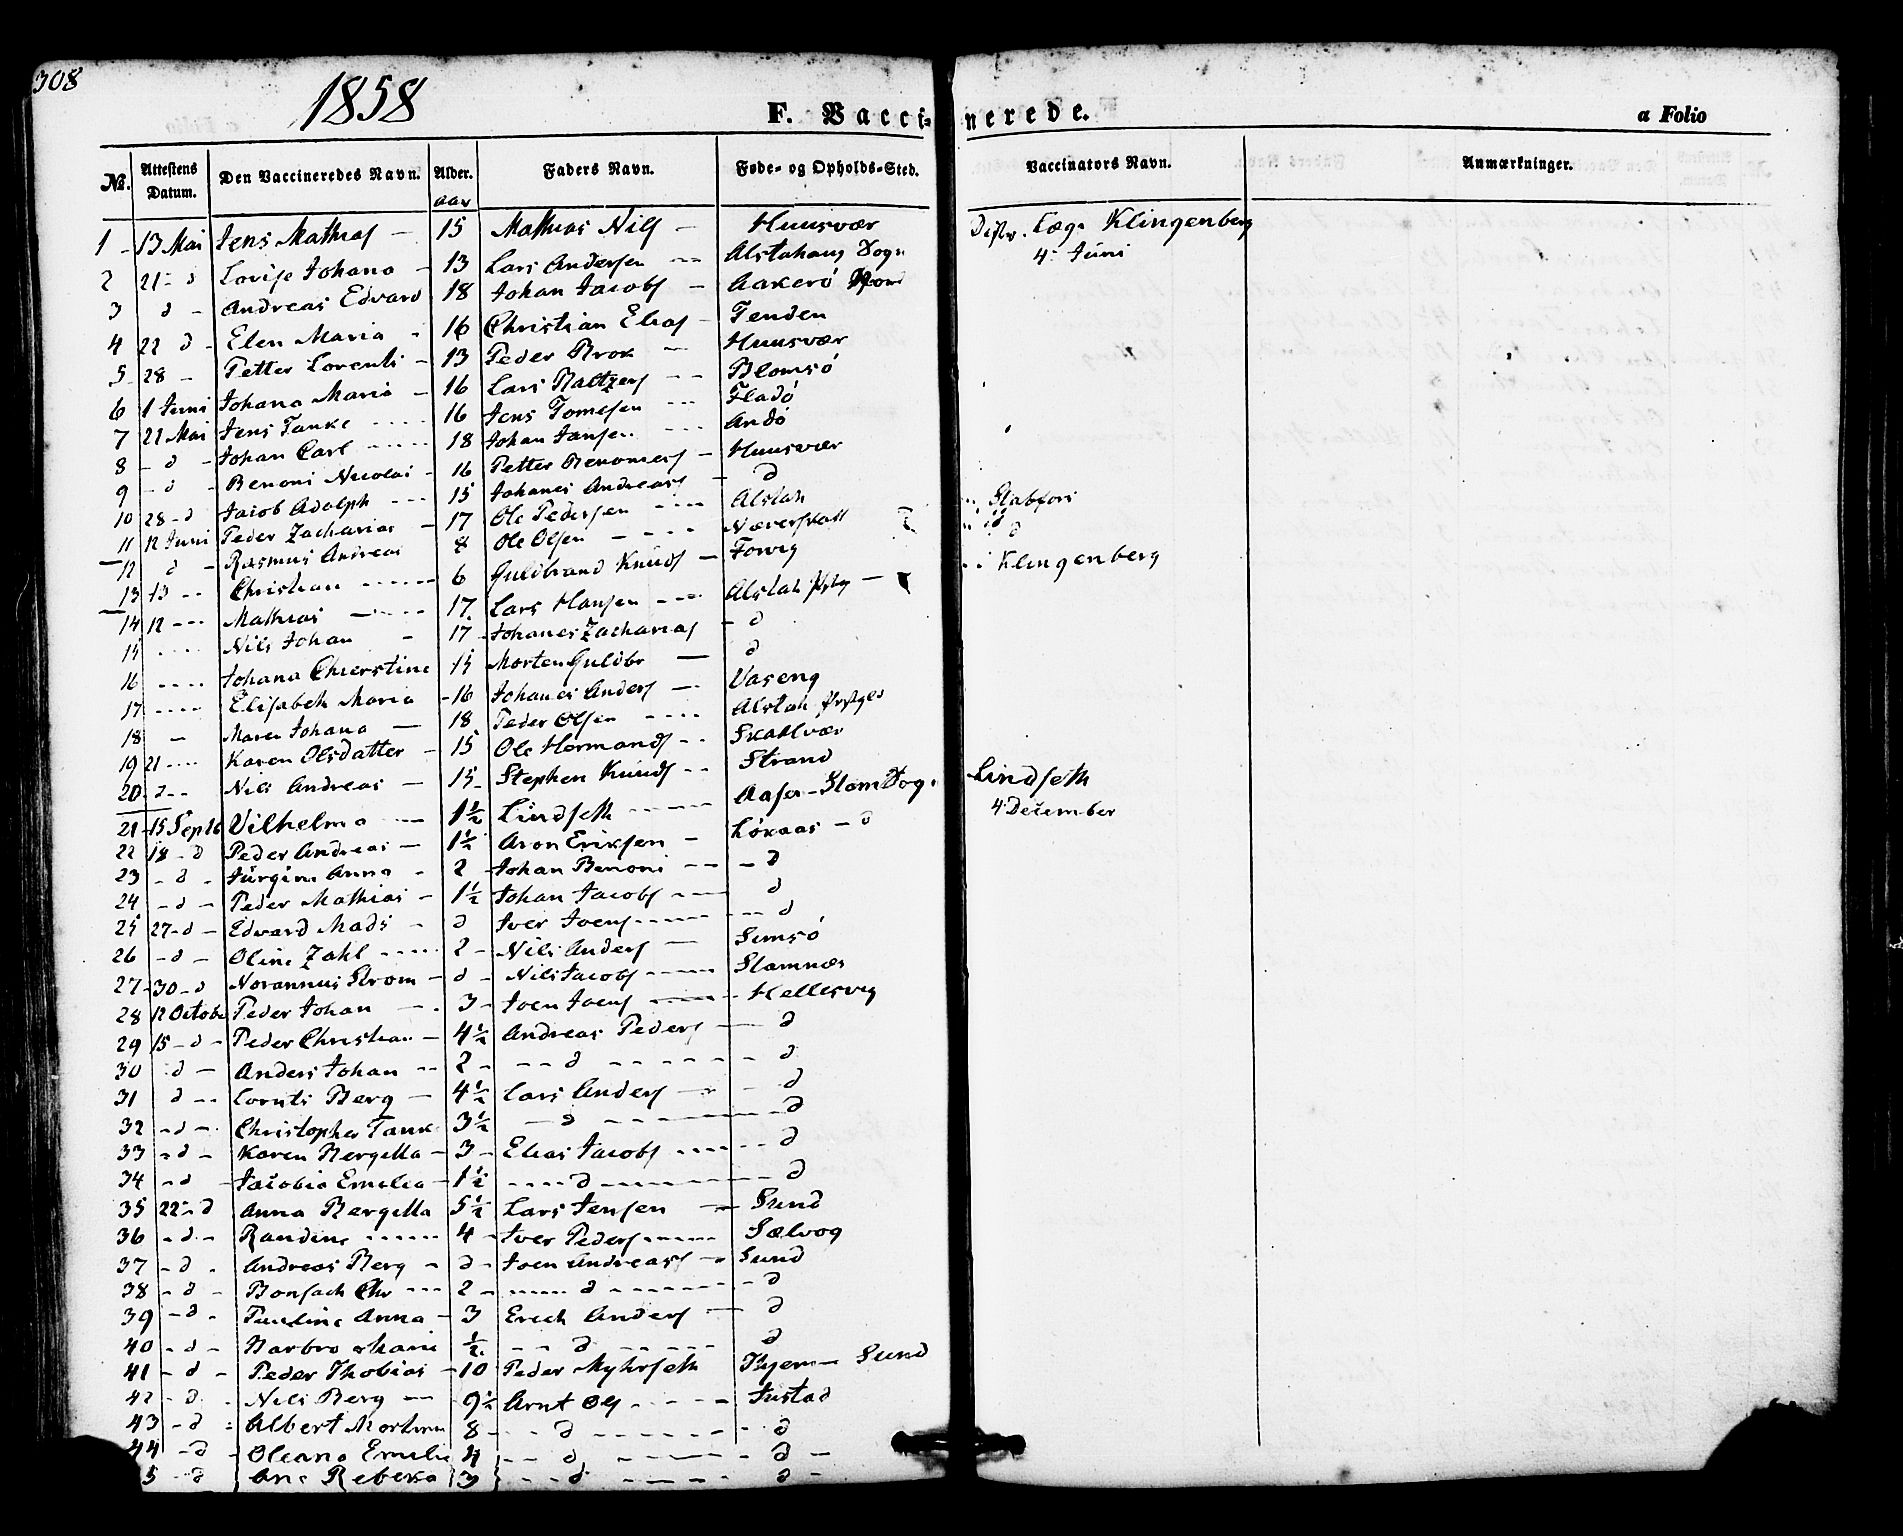 308
1858
F. Vaccinerede.
a Folio
№. Attestens Datum. Den Vaccineredes Navn. Alder. Faders Navn. Føde- og Opholds-Sted. Vaccinators Navn. Anmærkninger.
aar
1 - 13 Mai Jens Mathias - 15 Mathias Nils - Huusvær Distr. Læge Klingenberg
2 21 - d Lovise Johana - 13 Lars Andersen - Alstahaug Sogn 4 Juni
3 d - Andreas Edvard 18 Johan Jacobs - Aakerö
4 22 d - Elen Maria - 16 Christian Elias - Tenden
5 28 - Petter Lorents - 13 Peder Brok - Huusvær
6 1 Juni Johana Maria - 16 Lars Baltzers - - Blomsö
7 21 Mai Jens Tanke - - - 16 Jens Tomesen - - - Fladö
8 - d - Johan Carl - - - 18 Johan Jansen - - - Andö
9 - d - Benoni Nicolai - 16 Petter Benonies - Huusvær
10 28 - d Jacob Adolph - - - 15 Johanes Andreas - d
11 12 Juni Peder Zacharias - 17 Ole Pedersen - - - Alstah
12 d - Rasmus Andreas 8 Ole Olsen - - - - d
13 13 - - Christian - - - - 6 Guldbrand Knuds - Forvig Klingenberg
14 12 - - - Mathias - - - - 17 Lars Hansen - - - Alstah
15 - - - - Nils Johan - 17 - Johanes Zacharias - d
16 - - - - Johana Chierstine 15 Morten Guldbr - d
17 - - - - Elisabeth Maria - 16 Johanes Anders - - Vaseng
18 - Maren Johana - 18 Peder Olsen - - - - Alstah
19 21 - - - Karen Olsdatter - 15 Ole Hermands - - Skalvær
20 - d - - Nils Andreas - 15 - Stephen Knuds - - Strand
21 - 15 Sept Vilhelma - - 1½ Lindseth - - - - Stam Sogn Lindseth
22 18 - d Peder Andreas - 1½ Aron Eriksen - Lökaas - d 4 December
23 - d - Jürgine Anna - 2 - Johan Benoni - - - d
24 - d - Peder Mathias - 1½ Johan Jacobs - - - d
25 27 - d - Edvard Mads - d Iver Joens - - - - - - d
26 - d - Oline Zahl - - - - 2 - Nils Anders - Semsö
27 - 30 - d Norannus Strom - d - Nils Jacobs - - - - Stamnæs
28 12 Octobr Peder Johan - - 3 - Joen Joens - - - - Hellesvig
29 15 - d - Peder Christian - 4½ Andreas Peders - d
30 - d - Anders Johan - - 2 - - - d - - - - - - d
31 d - - Cornts Berg - 4½ Lars Anders - - d
32 - d - Christopher Tank 3½ - d - - - - - d
33 - d - Karen Bergitta - 3 - Elias Jacobs - - - - - d
34 - d - Jacobia Emelia - 1½ - - - - d - - - - - d
35 22 - d Anna Bergitta 5½ Lars Jensen - Sund
36 - d - Randine - - - - 4 - Iver Peders - - - - Sælvog
37 - d - Andreas Berg - d - Joen Andreas - - Sund
38 - d - Bonsach Chr - - - 2 - - - - d - - - - - d
39 - d - Pauline Anna - 3 Erich Anders - d
40 - d - Barbro Marie ½ - - d - - - - d
41 - d - Peder Thobias - 10 Peder Myhrseth Sund
42 - d - Nils Berg - 9½ Arnt Ols - - - - Justad
43 - d - Albert Morten 8 - - d - - - - - - d
44 - d - Oleana Emelie 4 - - d - - - - - d -
5 - d Ane Rebeka 3 - - - d - - - - d -